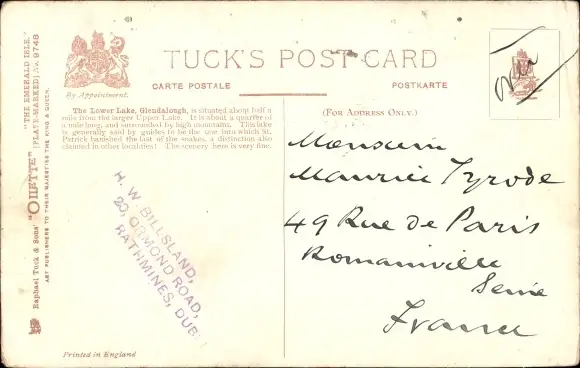 Raphael Tuck & Sons' "OILETTE" [PLATE-MARKED] No. 9748
"THE EMERALD ISLE."
ART PUBLISHERS TO THEIR MAJESTIES THE KING & QUEEN.
By Appointment.
TUCK'S POST CARD
CARTE POSTALE
POSTKARTE
The Lower Lake, Glendalough, is situated about half a
mile from the larger Upper Lake. It is about a quarter of
a mile long, and surrounded by high mountains. This lake
is generally said by guides to be the one into which St.
Patrick banished the last of the snakes, a distinction also
claimed in other localities! The scenery here is very fine.
H. W. BILLSLAND,
20, ORMOND ROAD,
RATHMINES, DUB
(FOR ADDRESS ONLY.)
Monsieur
Maurice Tyrode
49 Rue de Paris
Romainville
Seine
France
Printed in England